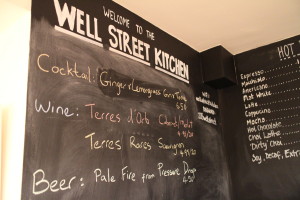 WELCOME TO THE
WELL STREET KITCHEN
Cocktail: Ginger & Lemongrass Gin & Tonic
Wine: Terres d'Orb
Terres Rares Sauvignon
Beer: Pale Fire from Pressure Drop
HOT
Espresso
Macchiato
Americano
Flat White
Latte
Cappucino
Mocha
Hot Chocolate
Chai Latte
Dirty Chai
Soy, Decaf, Extra